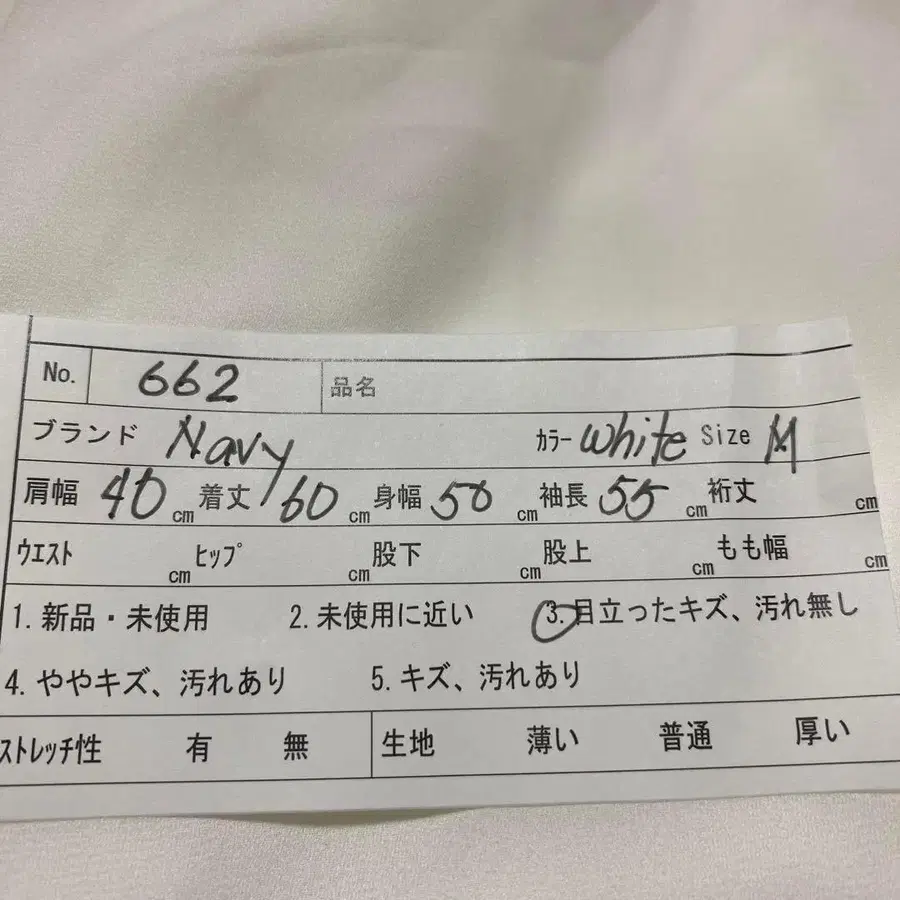 No. 662 品名
ブランド Navy カラー white Size M
肩幅 40 cm 着丈 60 cm 身幅 50 cm 袖長 55 cm 裄丈 cm
ウエスト cm ヒップ cm 股下 cm 股上 cm もも幅 cm
1. 新品・未使用 2. 未使用に近い 3. 目立ったキズ、汚れ無し
4. ややキズ、汚れあり 5. キズ、汚れあり
ストレッチ性 有 無 生地 薄い 普通 厚い